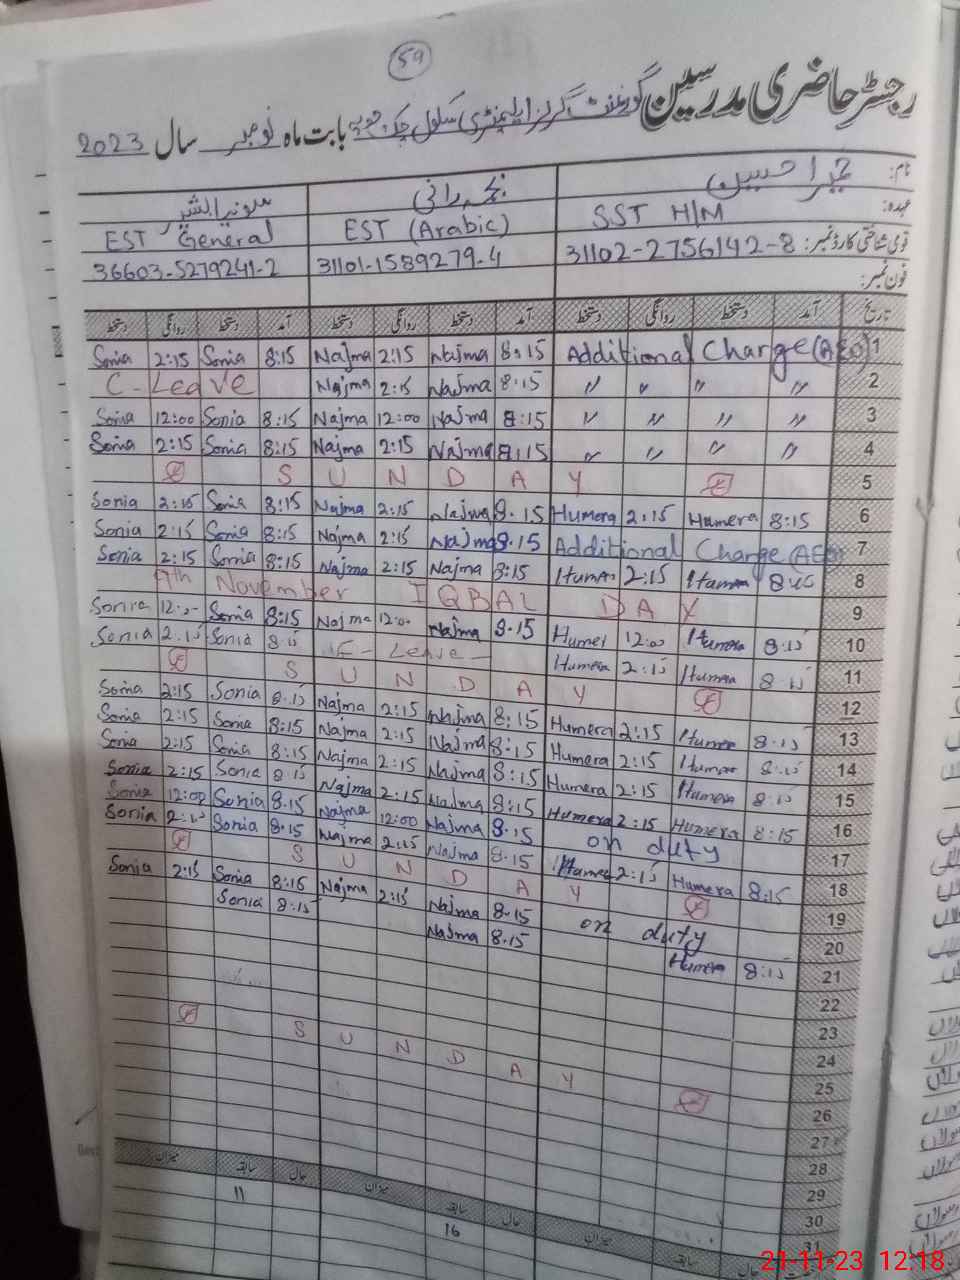 59
رجسٹر حاضری مدرسین گورنمنٹ گرلز ایلیمنٹری سکول چک بابت ماہ نومبر سال 2023
نام:
عہدہ: SST H/M EST (Arabic) EST General
قومی شناختی کارڈ نمبر: 31102-2756142-8 31101-1589279-4 36603-5279241-2
فون نمبر:
تاریخ آمد دستخط روانگی دستخط آمد دستخط روانگی دستخط آمد دستخط روانگی دستخط
Sonia 2:15 Sonia 8:15 Najma 2:15 Najma 8:15 Additional Charge (AEO) 1
C-Leave Najma 2:15 Najma 8:15 " " " " 2
Sonia 12:00 Sonia 8:15 Najma 12:00 Najma 8:15 " " " " 3
Sonia 2:15 Sonia 8:15 Najma 2:15 Najma 8:15 " " " " 4
S U N D A Y 5
Sonia 2:15 Sonia 8:15 Najma 2:15 Najma 8.15 Humera 2:15 Humera 8:15 6
Sonia 2:15 Sonia 8:15 Najma 2:15 Najma 8.15 Additional Charge (AEO) 7
Sonia 2:15 Sonia 8:15 Najma 2:15 Najma 8:15 Humera 2:15 Humera 8
9th November IQBAL DAY 9
Sonia 12:00 Sonia 8:15 Najma 12:00 Najma 8.15 Humera 12:00 Humera 8:15 10
Sonia 2:15 Sonia 8:15 C-Leave- Humera 2:15 Humera 8:15 11
S U N D A Y 12
Sonia 2:15 Sonia 8:15 Najma 2:15 Najma 8:15 Humera 2:15 Humera 8:15 13
Sonia 2:15 Sonia 8:15 Najma 2:15 Najma 8:15 Humera 2:15 Humera 8:15 14
Sonia 2:15 Sonia 8:15 Najma 2:15 Najma 8:15 Humera 2:15 Humera 8:15 15
Sonia 2:15 Sonia 8:15 Najma 2:15 Najma 8:15 Humera 2:15 Humera 8:15 16
Sonia 12:00 Sonia 8.15 Najma 12:00 Najma 8.15 on duty 17
Sonia 2:15 Sonia 8.15 Najma 2:15 Najma 8.15 Humera 2:15 Humera 8:15 18
S U N D A Y 19
Sonia 2:15 Sonia 8:15 Najma 2:15 Najma 8.15 on duty 20
Sonia 8:15 Najma 8.15 Humera 8:15 21
22
23
24
25
S U N D A Y 26
27
28
29
30
31
میزان سابقہ حال میزان سابقہ حال میزان سابقہ حال
11 16
21-11-23 12:18